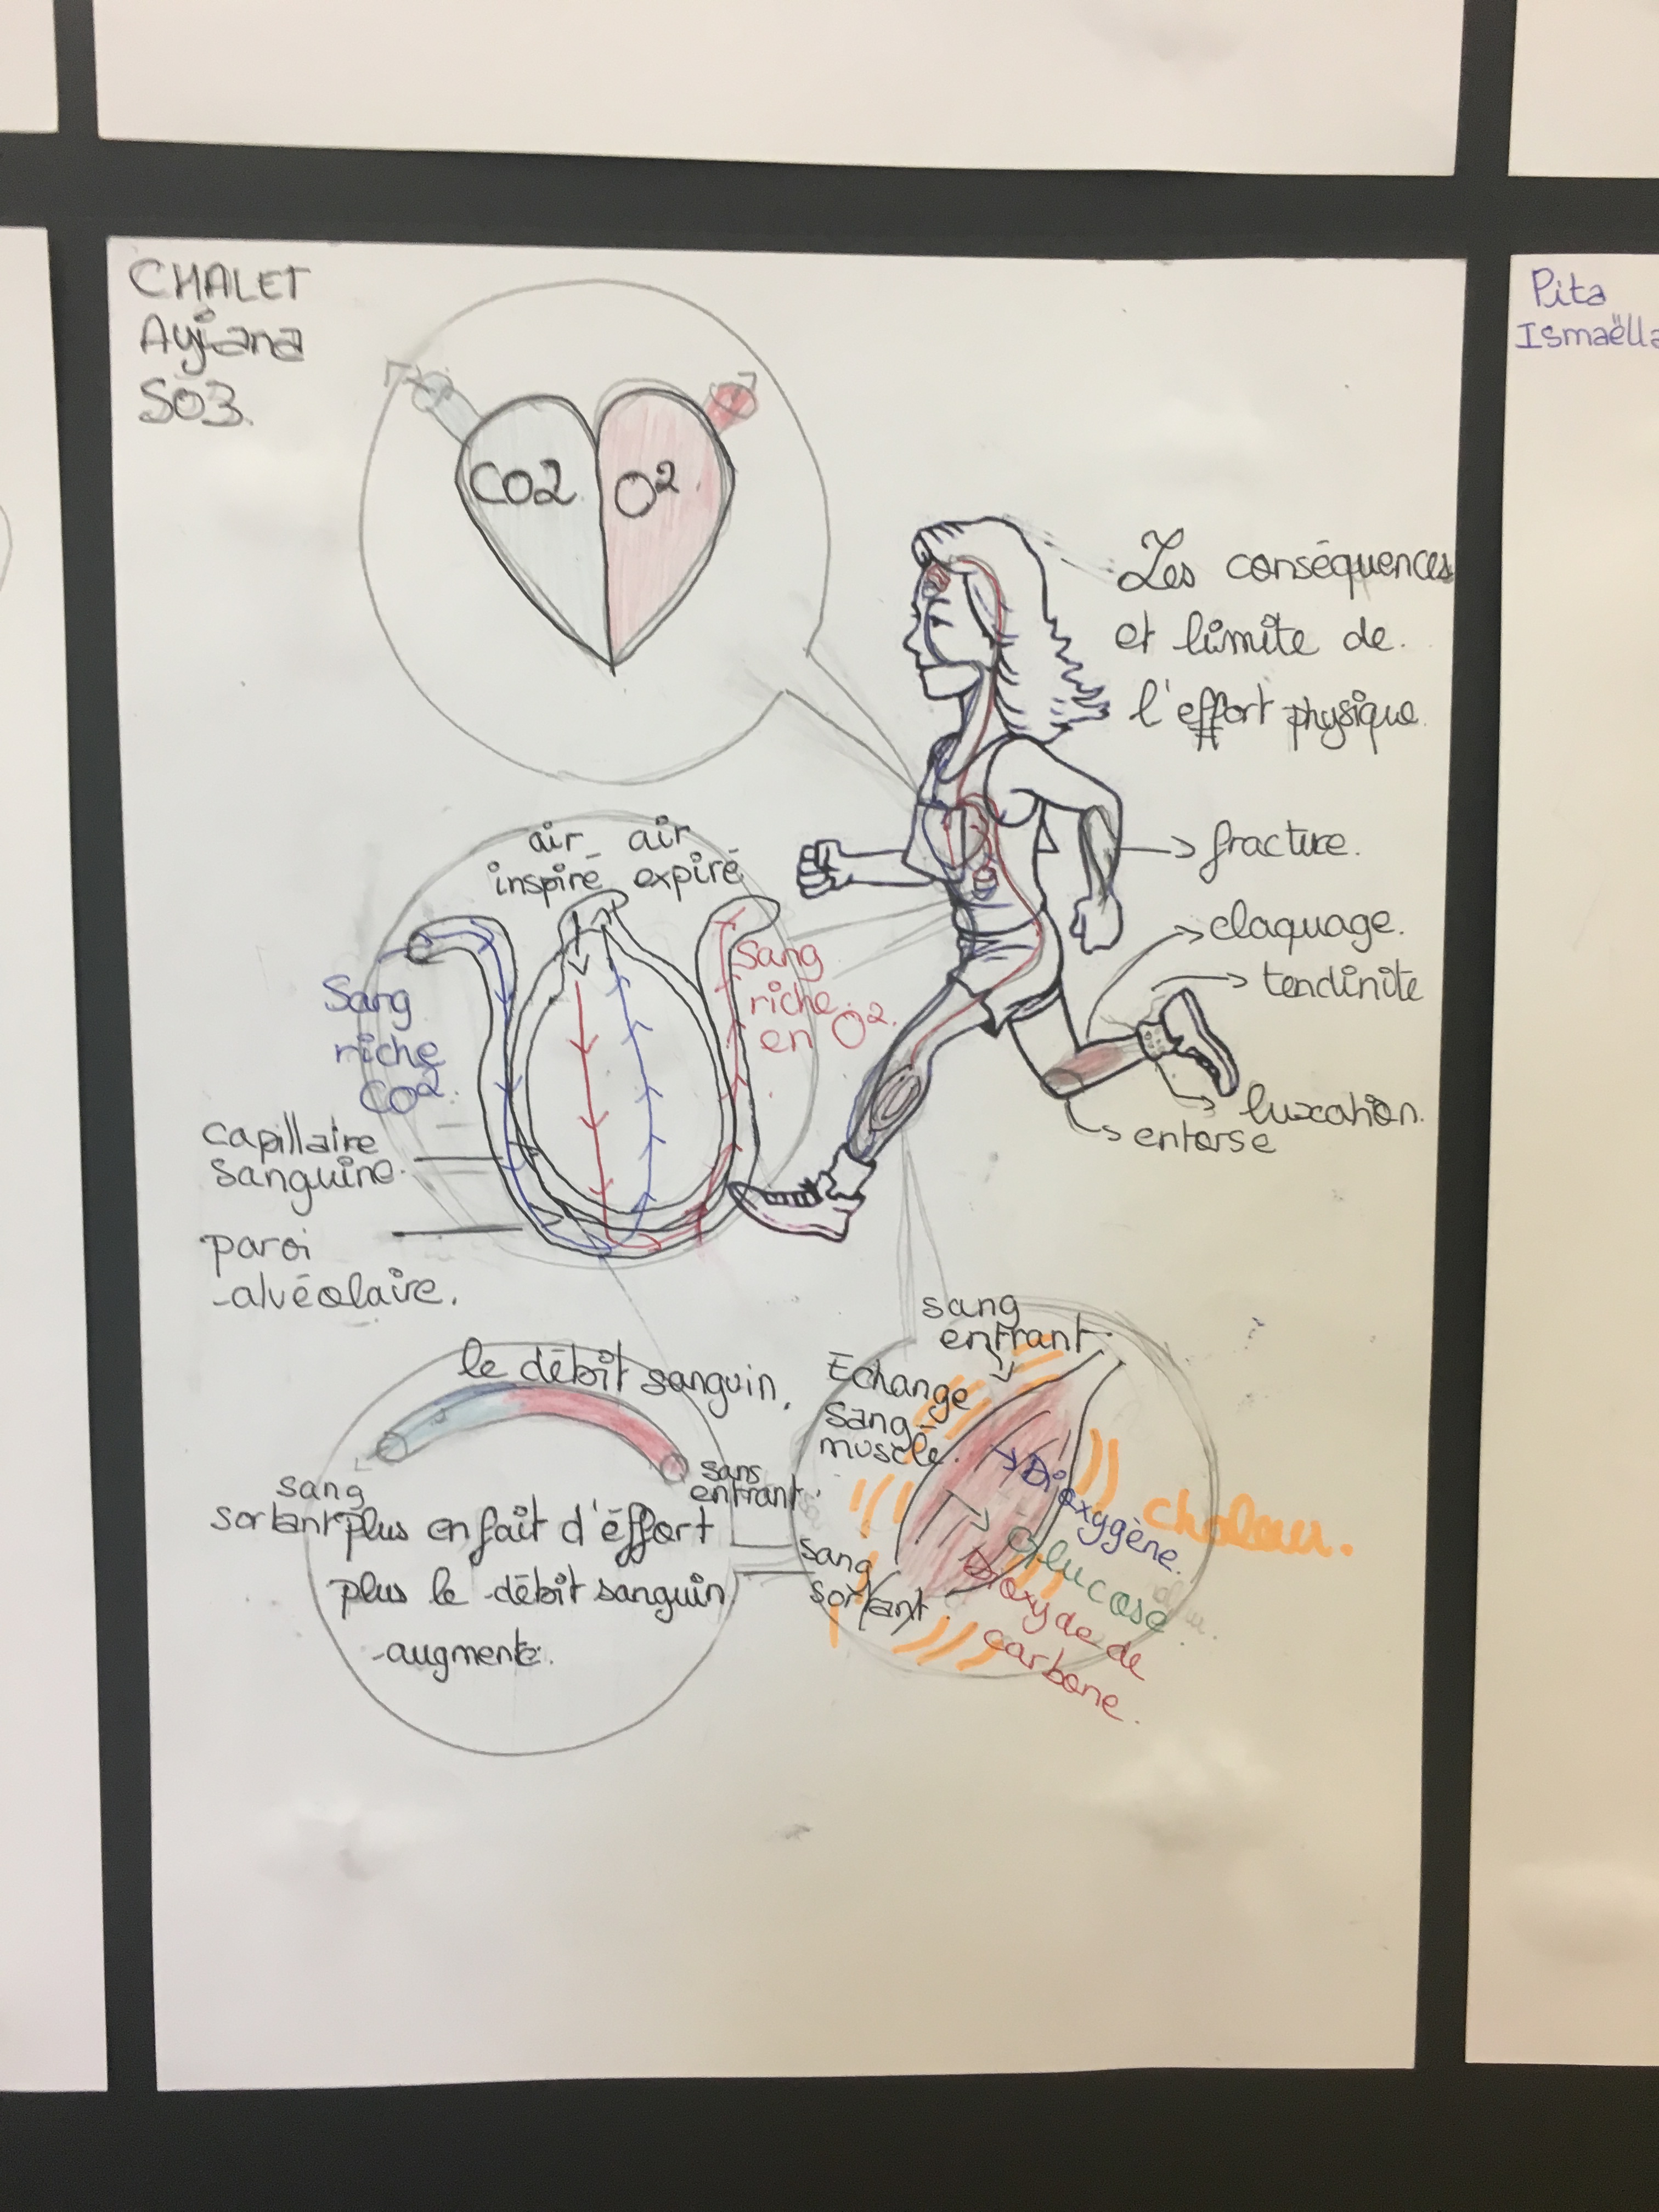 CHALET
Ayjana
S03.
Pita
Ismaëlla
CO2
O²
Les conséquences
et limite de
l'effort physique.
fracture.
claquage.
tendinite
luxation.
entorse
air inspiré
air expiré
Sang
riche
CO².
Sang
riche
en O².
capillaire
sanguine.
paroi
alvéolaire.
le débit sanguin.
sang
sortant
sans
entrant.
plus en fait d'éffort
plus le débit sanguin
augmente.
sang
entrant.
Echange
sang-
muscle.
Dioxygène.
Glucose.
Dioxyde de
carbone.
chaleur.
sang
sortant.